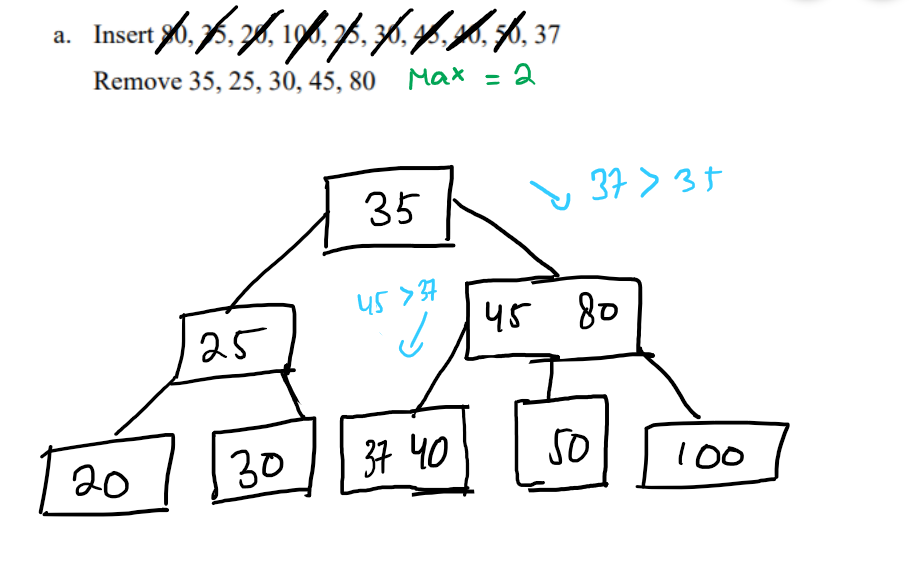 a. Insert 80, 35, 20, 100, 25, 30, 45, 40, 50, 37
Remove 35, 25, 30, 45, 80 Max = 2
35
37 > 35
45 > 37
25
45 80
20
30
37 40
50
100